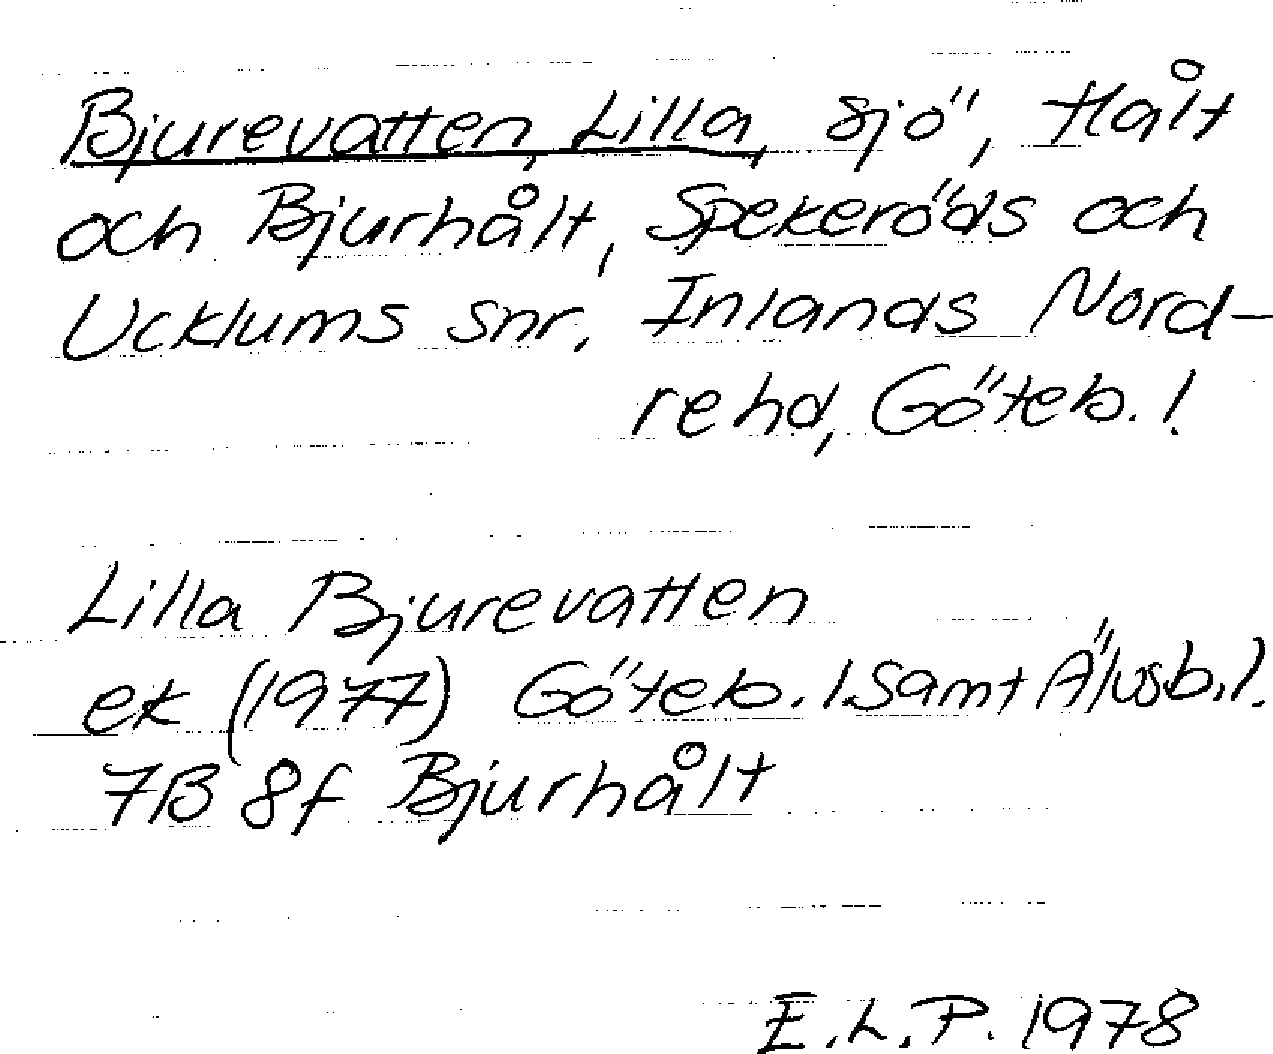 Bjurevatten, Lilla, sjö, Hålt
och Bjurhålt, Spekeröds och
Ucklums snr. Inlands Nord-
re hd, Göteb. l
Lilla Bjurevatten
ek (1977) Göteb. l. samt Älvsb. l.
7B 8f Bjurhålt
E.L.P. 1978